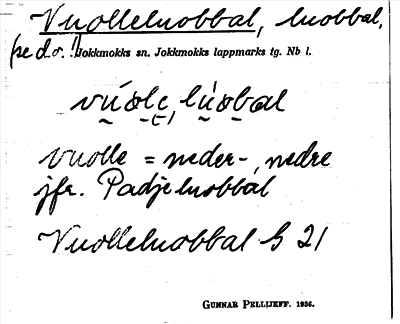 Vuolleluobbal, luobbal,
Jokkmokks sn. Jokkmokks lappmarks tg. Nb l.
vuolle = neder-, nedre
jfr. Padjeluobbal
Vuolleluobbal G 21
GUNNAR PELLIJEFF. 1936.